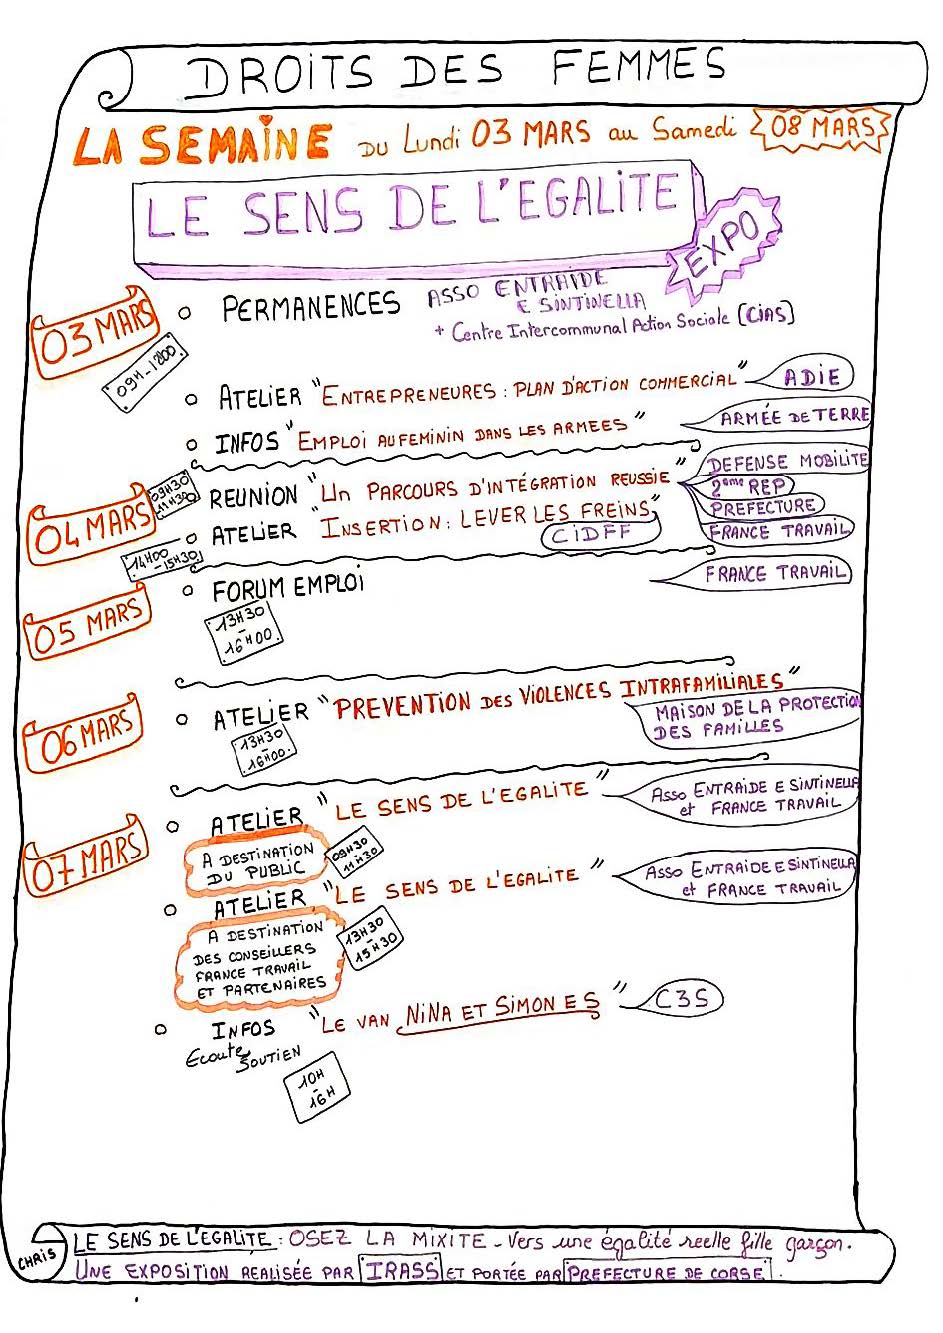 DROITS DES FEMMES
LA SEMAINE DU Lundi 03 MARS au Samedi 08 MARS
LE SENS DE L'EGALITE
EXPO
03 MARS
09H-12H00
PERMANENCES ASSO ENTRAIDE
E SINTINELLA
+ Centre Intercommunal Action Sociale (CIAS)
ATELIER "ENTREPRENEURES : PLAN D'ACTION COMMERCIAL" ADIE
INFOS "EMPLOI AU FEMININ DANS LES ARMEES" ARMÉE DE TERRE
04 MARS
09H30
11H30
REUNION "UN PARCOURS D'INTÉGRATION REUSSIE" DEFENSE MOBILITE
2ème REP
PREFECTURE
FRANCE TRAVAIL
14H00
-15H30
ATELIER "INSERTION : LEVER LES FREINS"
CIDFF
05 MARS
FORUM EMPLOI FRANCE TRAVAIL
13H30
-
16H00
06 MARS
ATELIER "PREVENTION DES VIOLENCES INTRAFAMILIALES"
MAISON DE LA PROTECTION
DES FAMILLES
13H30
-
16H00
07 MARS
ATELIER "LE SENS DE L'EGALITE" Asso ENTRAIDE E SINTINELLA
et FRANCE TRAVAIL
A DESTINATION
DU PUBLIC
09H30
11H30
ATELIER "LE SENS DE L'EGALITE" Asso ENTRAIDE E SINTINELLA
et FRANCE TRAVAIL
A DESTINATION
DES CONSEILLERS
FRANCE TRAVAIL
ET PARTENAIRES
13H30
-
15H30
INFOS "LE VAN NINA ET SIMON ES" C3S
Ecoute
SOUTIEN
10H
-
16H
CHRIS
LE SENS DE L'EGALITE : OSEZ LA MIXITE - Vers une égalité reelle fille garçon.
UNE EXPOSITION REALISÉE PAR IRASS ET PORTÉE PAR PREFECTURE DE CORSE.